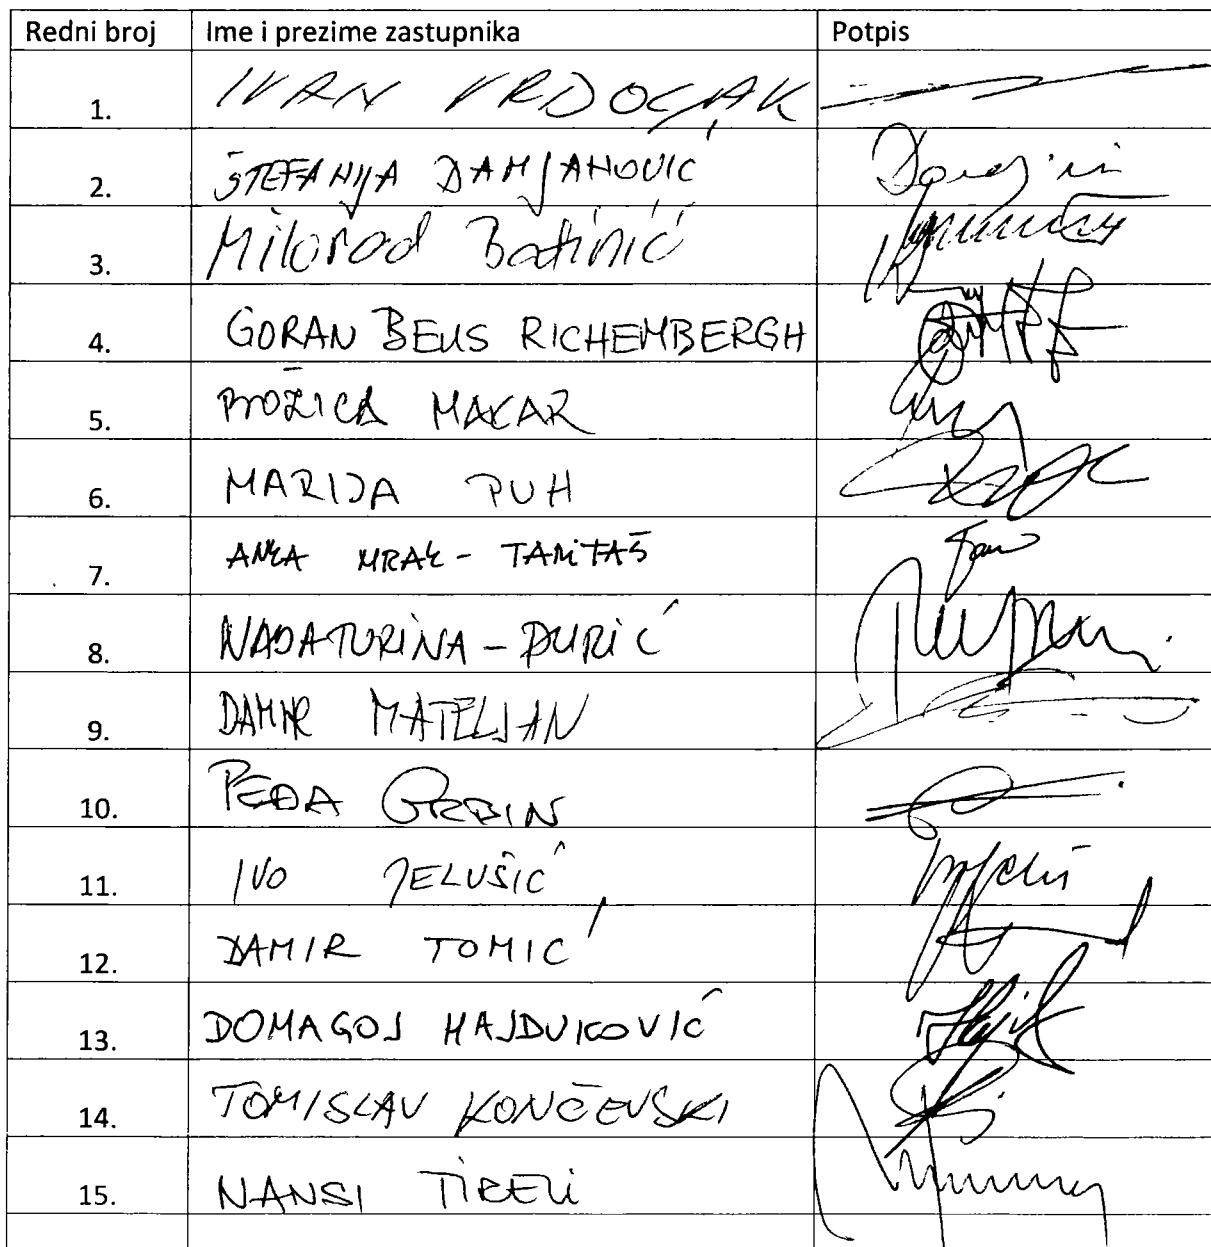 Redni broj Ime i prezime zastupnika Potpis
1. IVAN VRDOLJAK
2. ŠTEFANIJA DAMJANOVIĆ
3. Milorad Batinić
4. GORAN BEUS RICHEMBERGH
5. BOŽICA MAKAR
6. MARIJA PUH
7. ANKA MRAK-TARITAŠ
8. NADA TURINA-ĐURIĆ
9. DAMIR MATELJAN
10. PEĐA GRBIN
11. IVO JELUŠIĆ
12. DAMIR TOMIĆ
13. DOMAGOJ HAJDUKOVIĆ
14. TOMISLAV KONČEVSKI
15. NANSI TIRELI